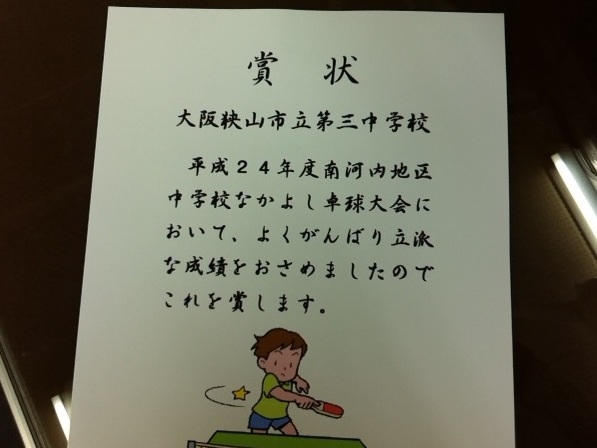 賞 状
大阪狭山市立第三中学校
平成24年度南河内地区
中学校なかよし卓球大会に
おいて、よくがんばり立派
な成績をおさめましたので
これを賞します。